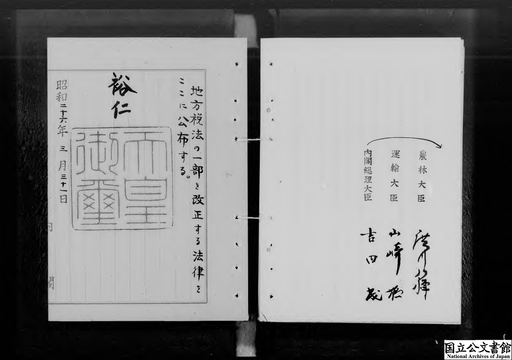 地方税法の一部を改正する法律を
ここに公布する。
裕仁
天皇
御璽
昭和二十六年三月三十一日
内閣
農林大臣 廣川弘禅
運輸大臣 山崎猛
内閣総理大臣 吉田茂
国立公文書館
National Archives of Japan